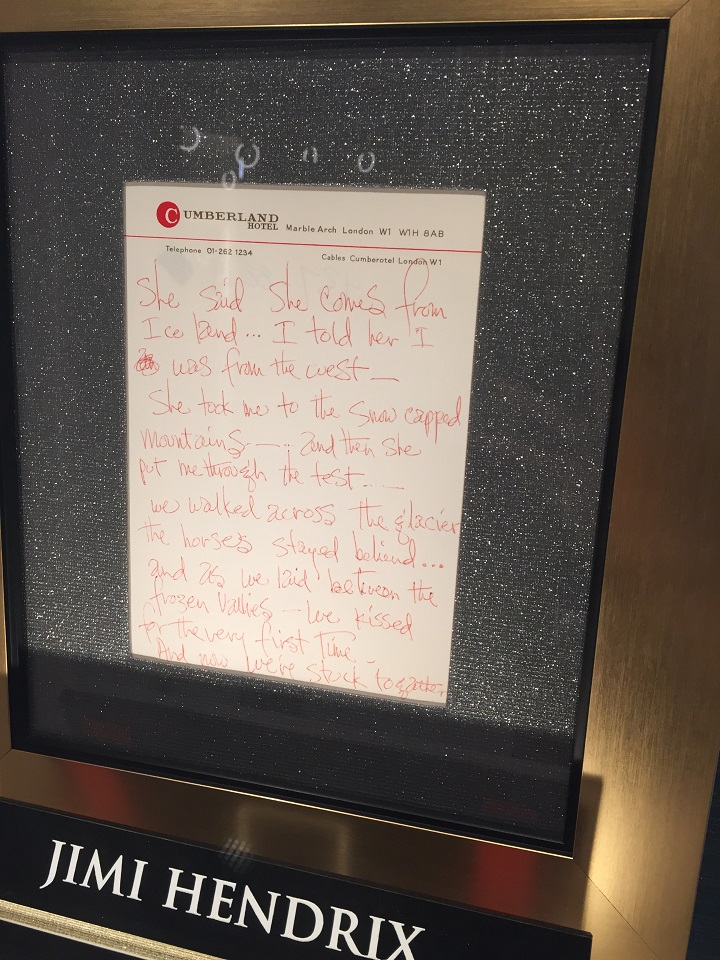 CUMBERLAND
HOTEL Marble Arch London W1 W1H 8AB
Telephone 01-262 1234
Cables Cumberotel London W1
She said she comes from
Ice land... I told her I
was from the west —
She took me to the snow capped
mountains —... and then she
put me through the test......
we walked across the glacier
the horses stayed behind...
and as we laid between the
frozen Vallies — we kissed
for the very first time..
And now we're stuck together
JIMI HENDRIX